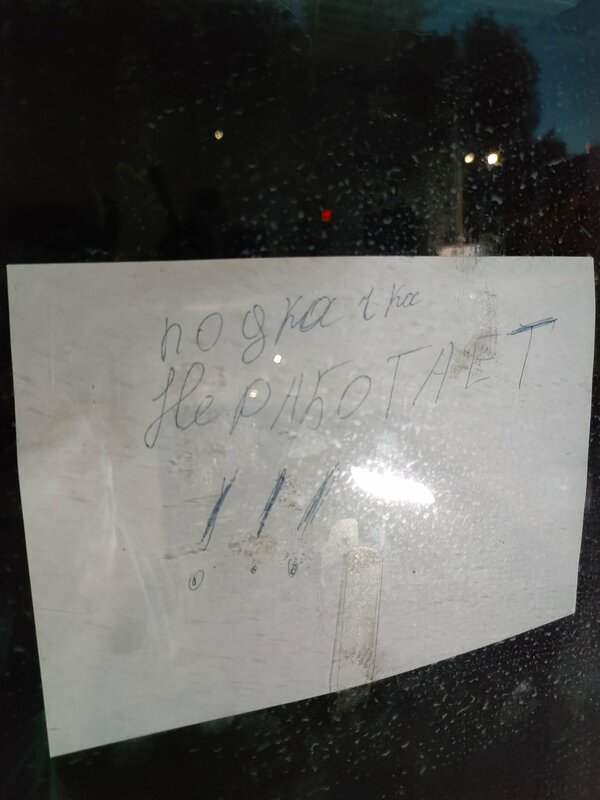 подкачка
Не РАБОТАЕТ
!!!